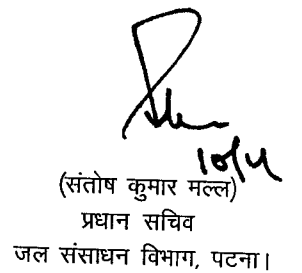 10/4
(संतोष कुमार मल्ल)
प्रधान सचिव
जल संसाधन विभाग, पटना।